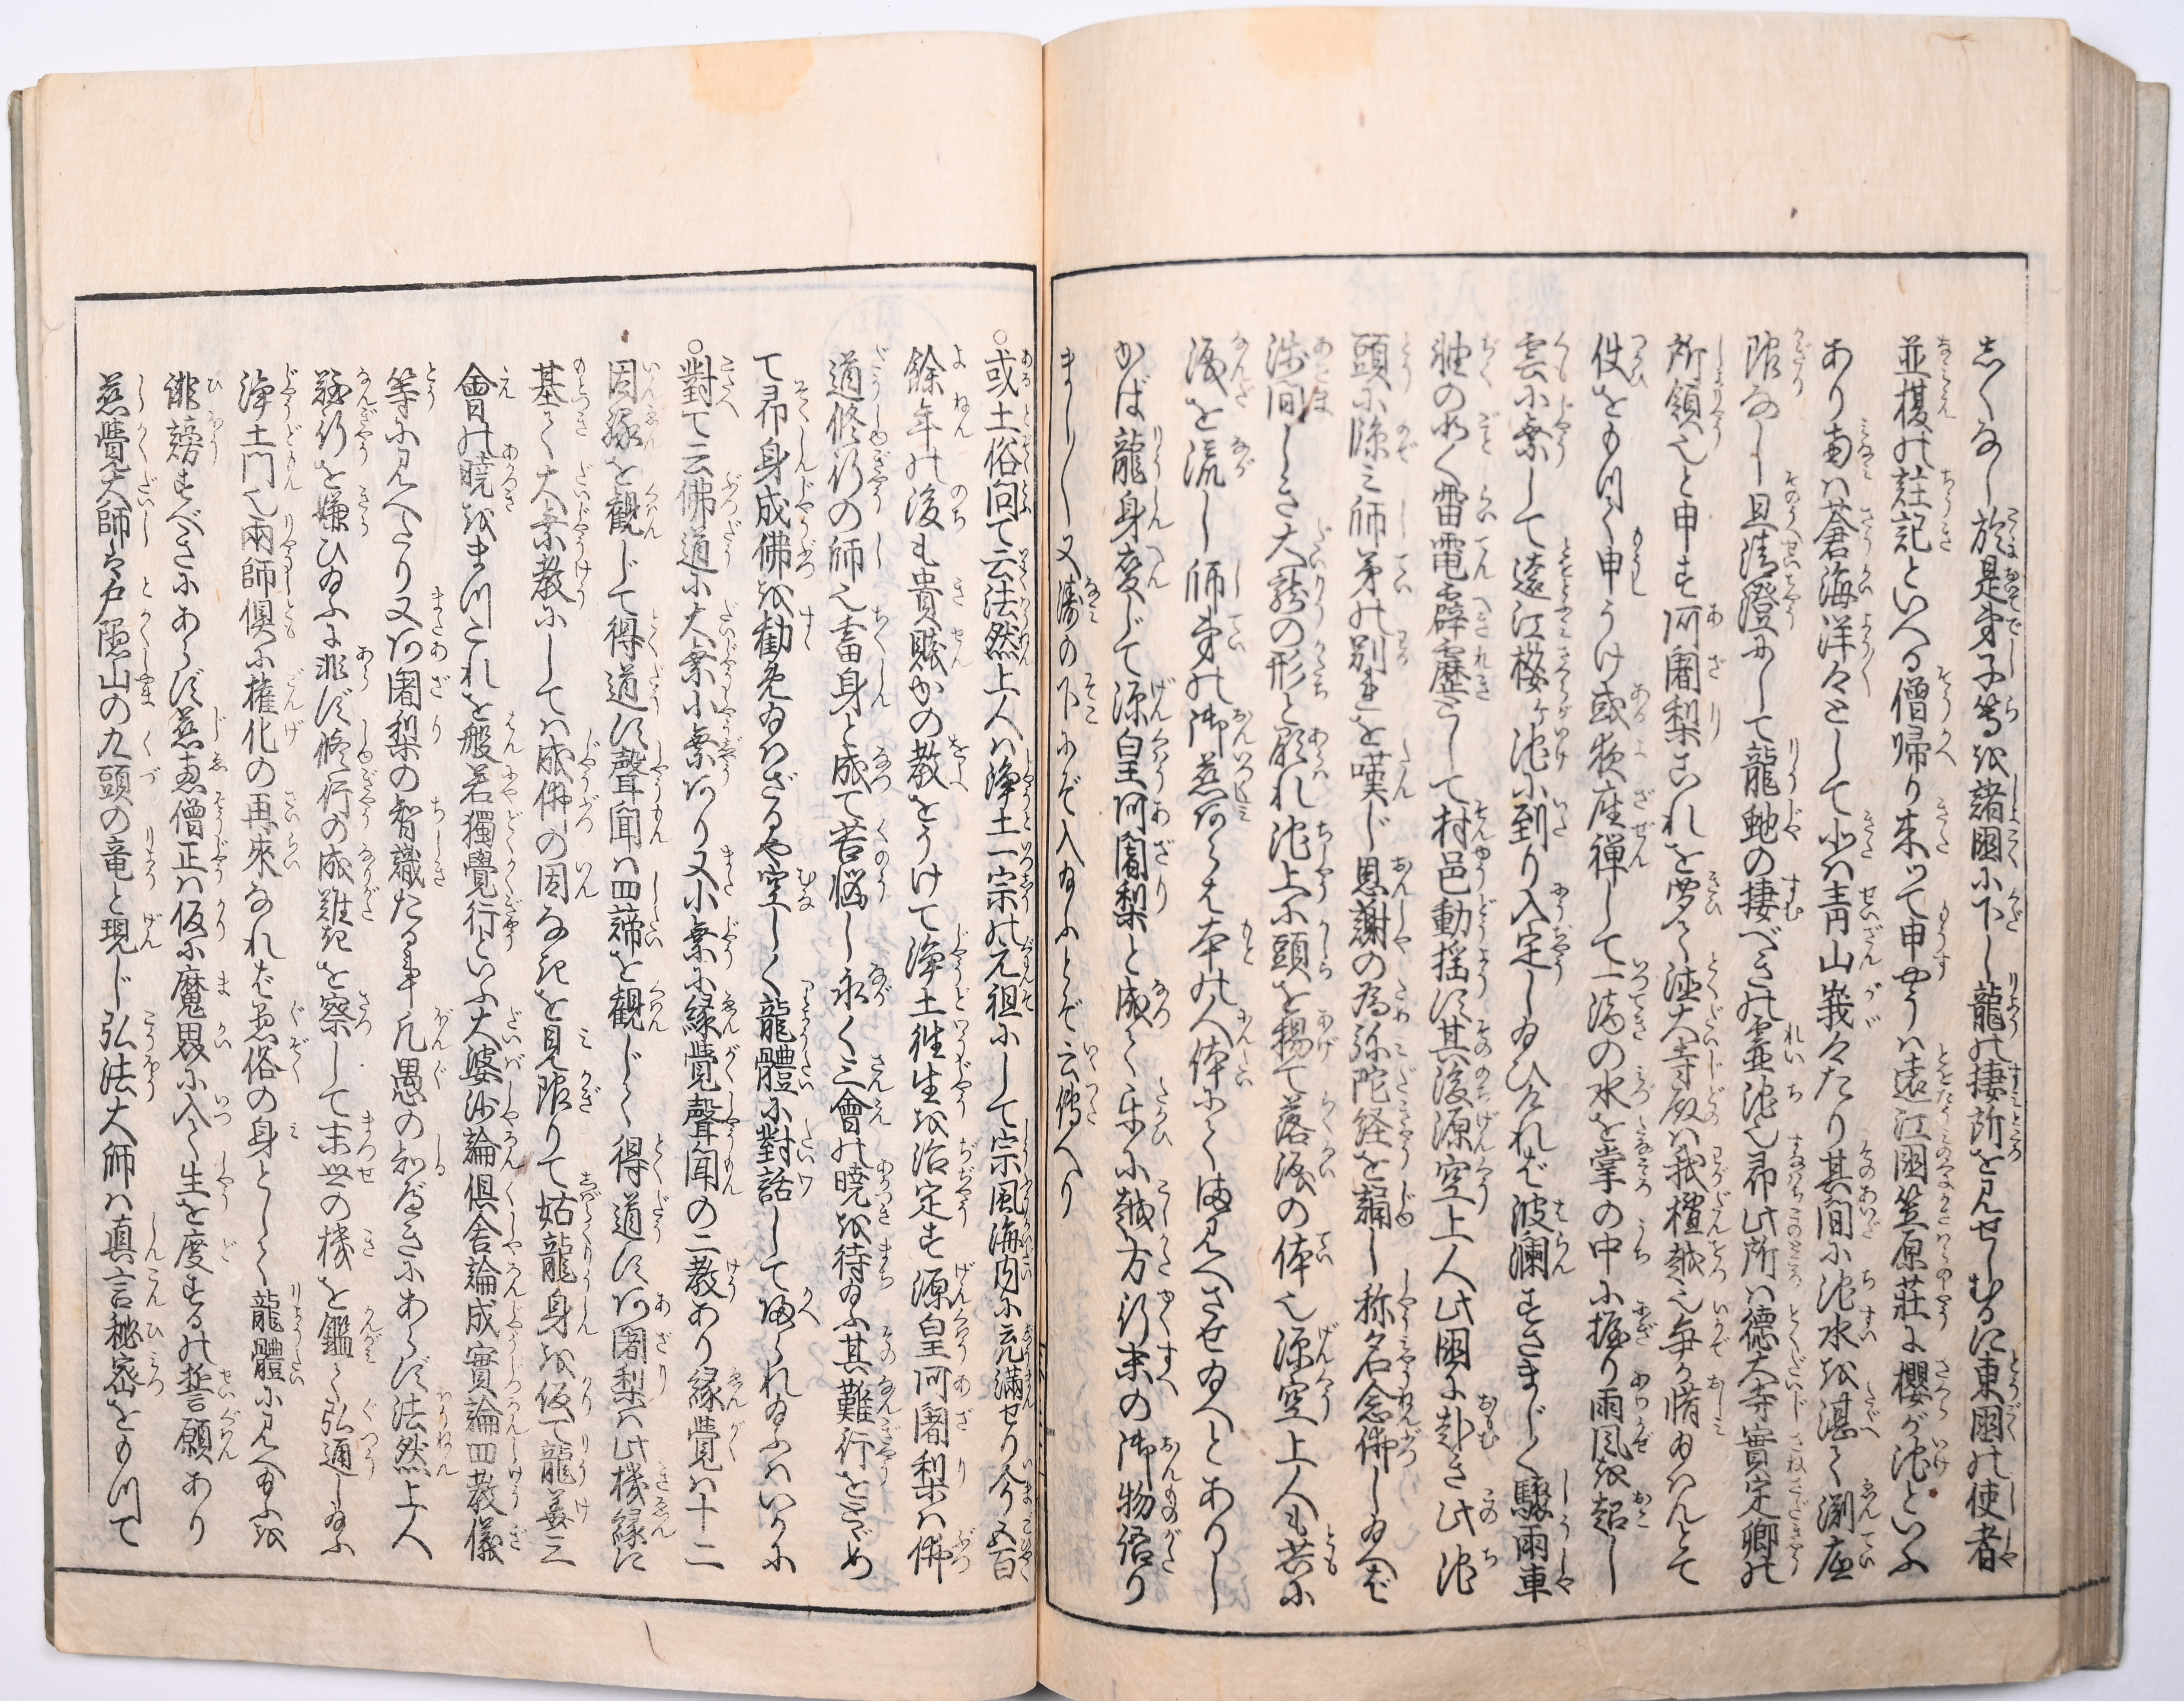 志くなし於是弟子等を諸國に下し龍の棲所を見せしむるに東國の使者
並榎の註記といへる僧帰り来つて申やうハ遠江國笠原莊に櫻が池といふ
あり南ハ蒼海洋々として北ハ青山峩々たり其間に池水を湛て渕底
限なし且清澄にして龍蛇の棲べきの霊池也即此所ハ德大寺實定卿の
所領也と申す阿闍梨これを
使をもつて申うけ或夜座禪して一滴の水を掌の中に握り雨風を起し
雲に乗して遠江桜ヶ池に到り入定し給ひければ波瀾すさまじく驟雨車
軸の如く雷電霹靂として村邑動揺す其後源空上人此國に赴き此池
頭に臨ミ師弟の別れを嘆じ恩謝の為弥陀経を誦し称名念佛し給へば
浅間しき大龍の形と顕れ池上に頭を揚て落涙の体也源空上人も共に
涙を流し師弟の御慈
かば龍身変じて源皇阿闍梨と成て
来に越方行末の御物語り
まし〱又濤の下にぞ入給ふとぞ云傳へり
○或土俗問て云法然上人ハ浄土一宗の元祖にして宗風海内に充満せり今五百
餘年の後も貴賎かの教をうけて浄土往生を治定す源皇阿闍梨ハ佛
道修行の師也畜身と成て苦悩し永く三會の曉を待給ふ其難行をとゞめ
て即身成佛を勧め給ハざるや空しく龍體に對話して帰られ給ふハいかに
○對て云佛道に大乗小乗あり又小乗に緣覺聲聞の二教あり緣覺ハ十二
因緣を觀じて得道す聲聞ハ四諦を觀じて得道す阿闍梨ハ此機緣に
基く大乗教にしてハ成佛の因なきを見限りて姑龍身を仮て龍華三
會の曉をまつこれを般若獨覺行といふ大婆沙論倶舎論成實論四教儀
等に見へたり又阿闍梨の智識たる事凡愚の知べきにあらず法然上人
難行を嫌ひ給ふに非ず修行の成難きを察して末世の機を鑑て弘通し給ふ
浄土門也兩師倶に權化の再來なれば愚俗の身として龍體に見へ給ふを
誹謗すべきにあらず慈惠僧正ハ仮に魔界に入て生を度するの誓願あり
慈覺大師ハ戸隠山の九頭の竜と現じ弘法大師ハ真言秘密をもつて